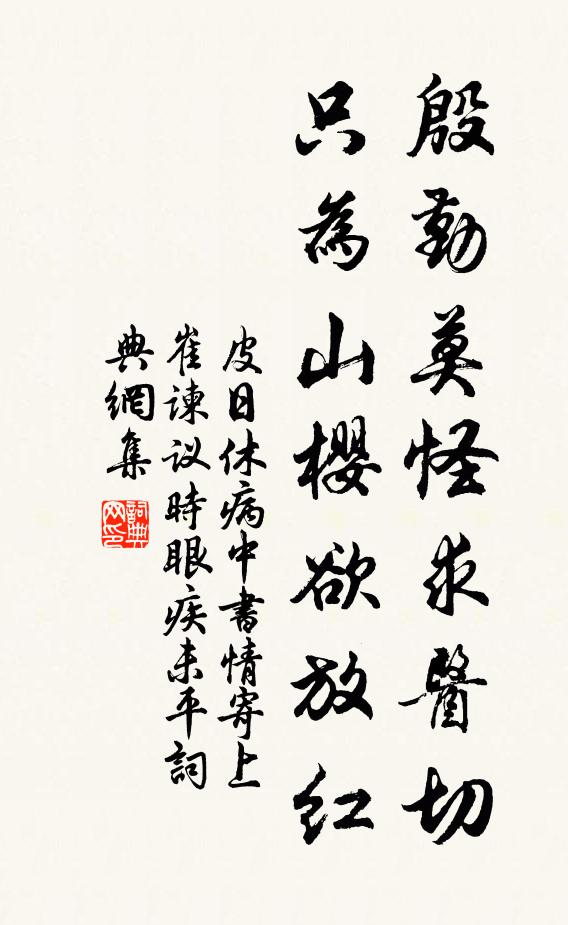 殷勤莫怪求醫切
只為山櫻欲放紅
皮日休病中書情寄上
崔諫议時眼疾未平詞
典網集
詞典
网印